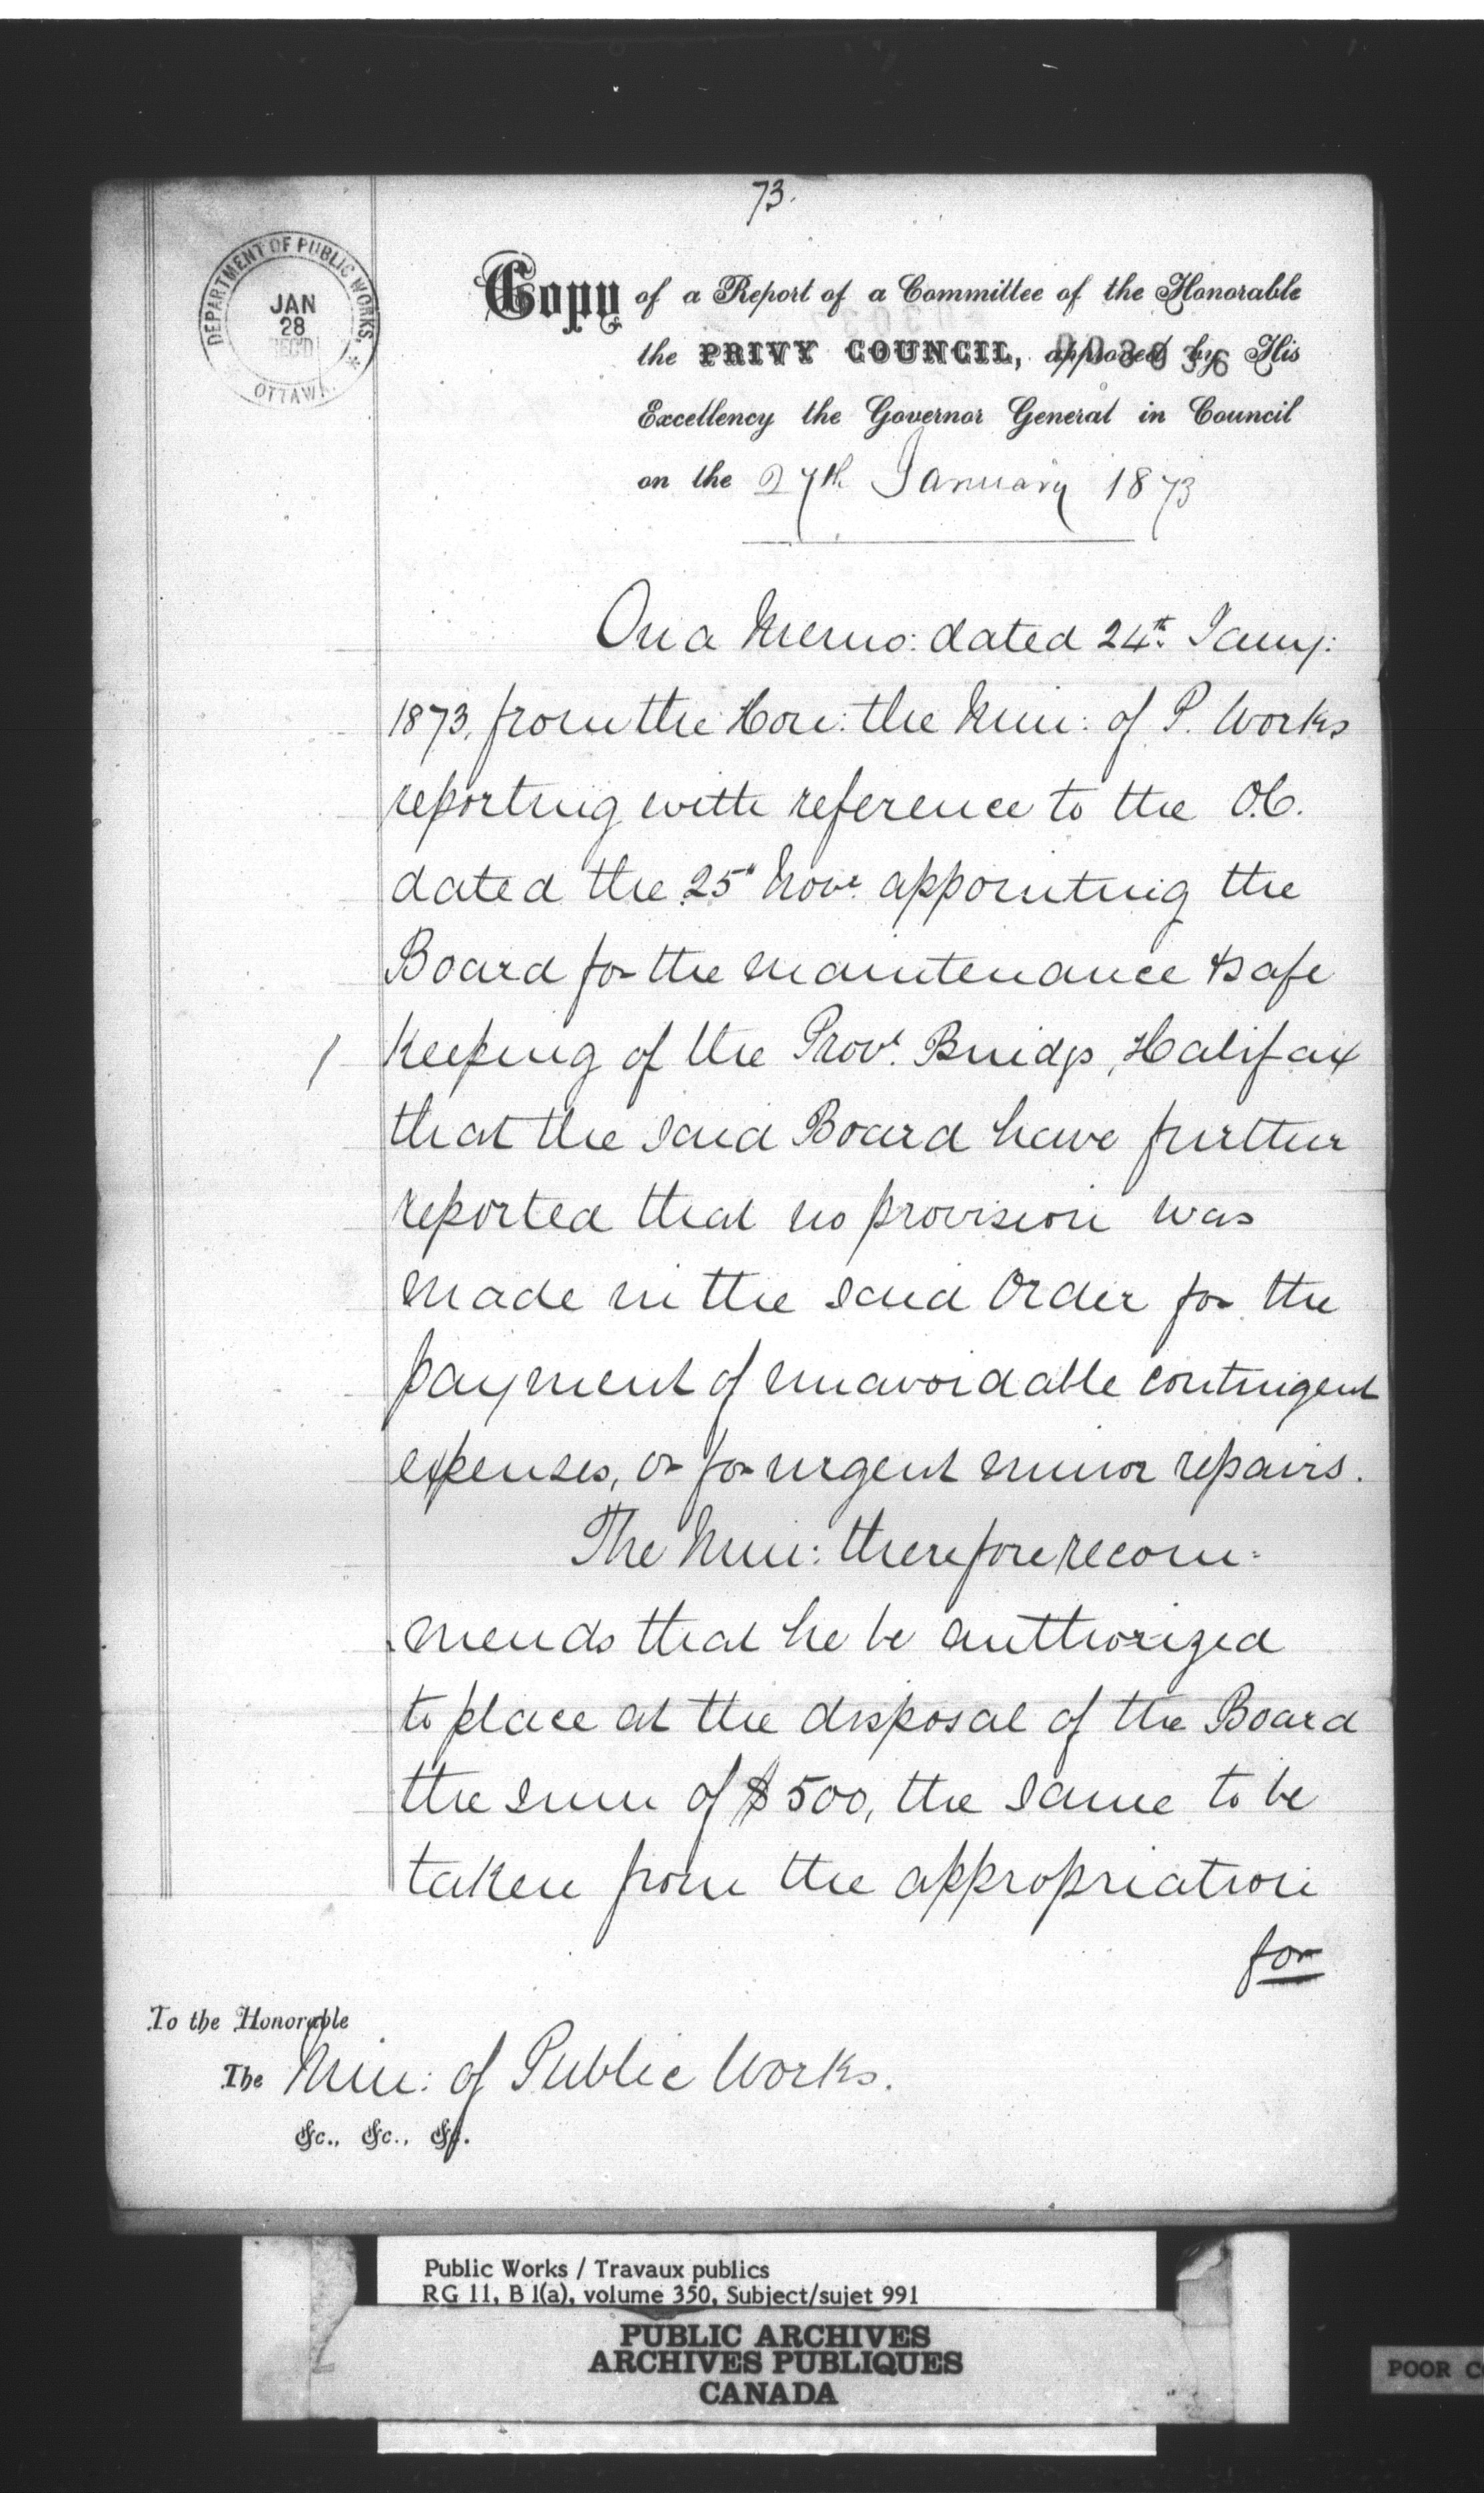 73.
DEPARTMENT OF PUBLIC WORKS.
JAN
28
REC'D
OTTAWA.
Copy of a Report of a Committee of the Honorable
the PRIVY COUNCIL, approved by His
Excellency the Governor General in Council
on the 27th January 1873
On a Memo: dated 24th Jany:
1873, from the Hon: the Min: of P. Works
reporting with reference to the O.C.
dated the 25th Novr appointing the
Board for the maintenance & safe
Keeping of the Provl Buidgs, Halifax
that the said Board have further
reported that no provision was
made in the said Order for the
payment of unavoidable contingent
expenses, or for urgent minor repairs.
The Min: therefore recom=
mends that he be authorized
to place at the disposal of the Board
the sum of $500, the same to be
taken from the appropriation
for
To the Honorable
The Min: of Public Works.
&c., &c., &c.
Public Works / Travaux publics
RG 11, B 1(a), volume 350, Subject/sujet 991
PUBLIC ARCHIVES
ARCHIVES PUBLIQUES
CANADA
POOR